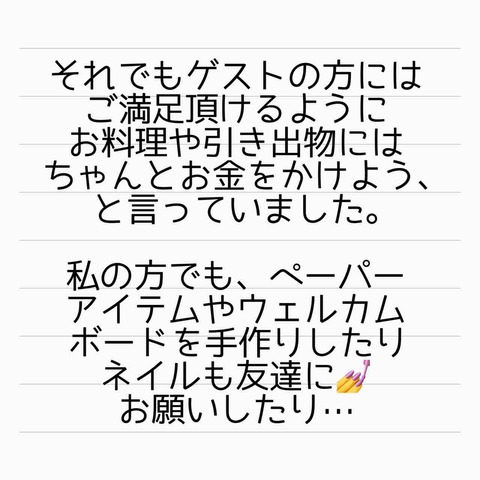 それでもゲストの方には
ご満足頂けるように
お料理や引き出物には
ちゃんとお金をかけよう、
と言っていました。
私の方でも、ペーパー
アイテムやウェルカム
ボードを手作りしたり
ネイルも友達に💅
お願いしたり…